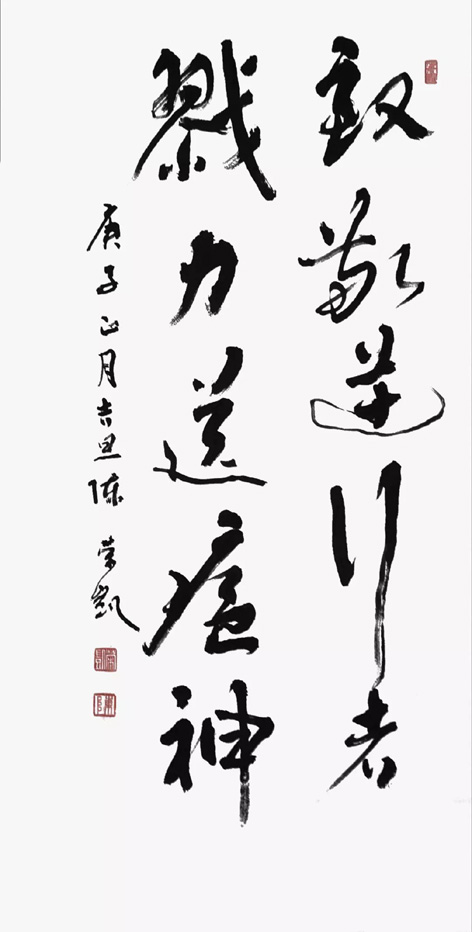 致敬逆行者
戮力送瘟神
庚子正月吉旦陈荣凯